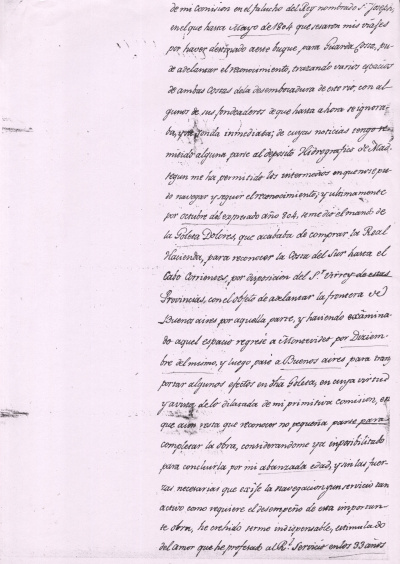 de mi comision en el falucho del Rey nombrado Sn. Joseph,
en el que hasta Mayo de 1804 que cesaron mis viajes
por haver destinado a ese buque, para Guarda Costa, pu-
de adelantar el reconocimiento, trazando varios espacios
de ambas Costas de la desembocadura de este rio, con al-
gunos de sus fondeaderos de que hasta ahora se ignora-
ba, y su sonda inmediata; de cuyas noticias tengo re-
mitido alguna parte al deposito Hidrografico de Mad.
segun me ha permitido los intermedios en que no se pu-
do navegar y seguir el reconocimiento; y ultimamente
por octubre del expresado año 804, se me dio el mando de
la Goleta Dolores, que acababa de comprar la Real
Hacienda, para reconocer la Costa del Sur hasta el
Cabo Corrientes, por disposicion del Sr. Virrey de estas
Provincias, con el objeto de adelantar la frontera de
Buenos aires por aquella parte, y haviendo examina-
do aquel espacio regresé a Montevideo por Diziem-
bre del mismo, y luego pasé a Buenos aires, para tran
portar algunos efectos en dha Goleta, en cuya virtud
y a vista de lo dilatado de mi primitiva comision, en
que aun resta que reconocer no pequeña parte para
completar la obra, considerandome ya imposibilitado
para concluirla por mi abanzada edad, y sin las fuer-
zas necesarias que exije la navegacion en servicio tan
activo como requiere el desempeño de esta importan-
te obra, he crehido serme indispensable, estimulado
del amor que he profesado al Rl. Servicio en los 33 años